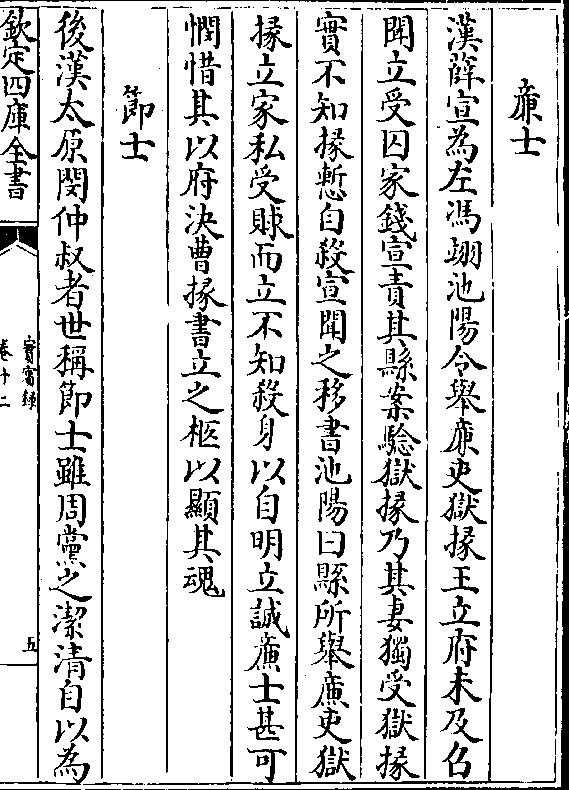 廉士
漢薛宣為左馮翊池陽令舉廉吏獄掾王立府未及召
聞立受囚家錢宣責其縣案驗獄掾乃其妻獨受獄掾
實不知掾慙自殺宣聞之移書池陽曰縣所舉廉吏獄
掾立家私受賕而立不知殺身以自明立誠廉士甚可
憫惜其以府決曹掾書立之柩以顯其魂
節士
後漢太原閔仲叔者世稱節士雖周黨之潔清自以為
欽定四庫全書
實賓錄
卷十二
五